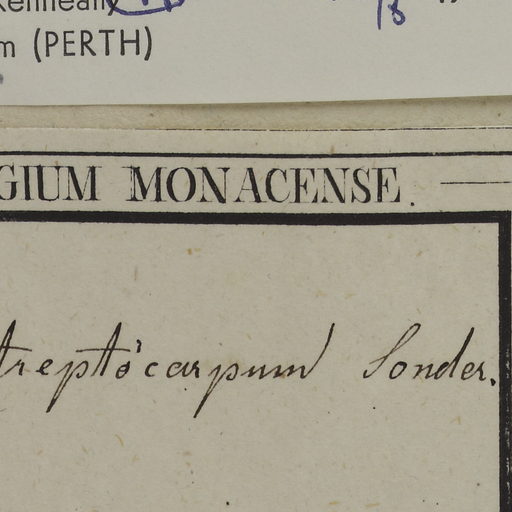 Kenneally
m (PERTH)
GIUM MONACENSE.
treptocarpum Sonder.